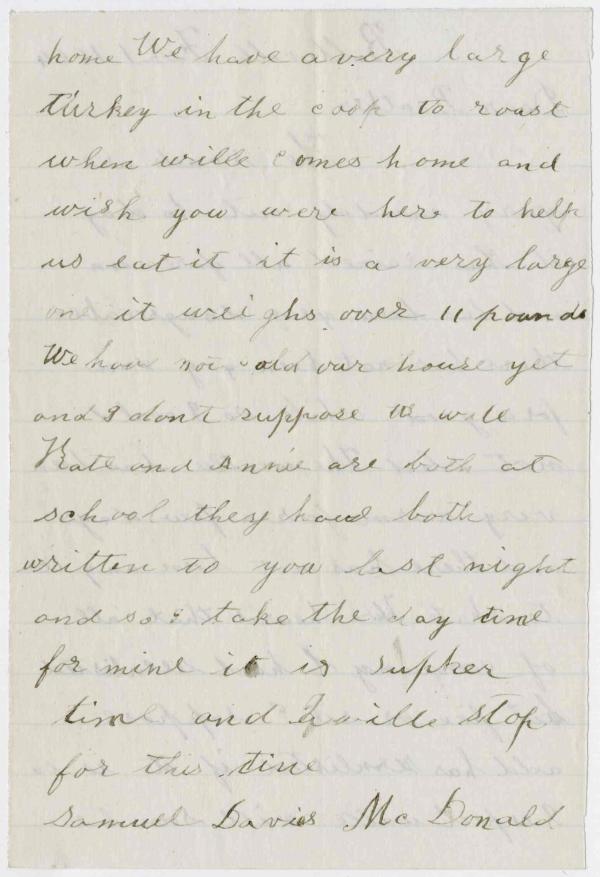 home We have a very large
turkey in the coop to roast
when wille comes home and
wish you were here to help
us eat it it is a very large
one it weighs over 11 pounds
We have not sold our house yet
and I dont suppose we will
Kate and Annie are both at
school they have both
written to you last night
and so I take the day time
for mine it is supper
time and I will stop
for this time
Samuel Davies McDonald